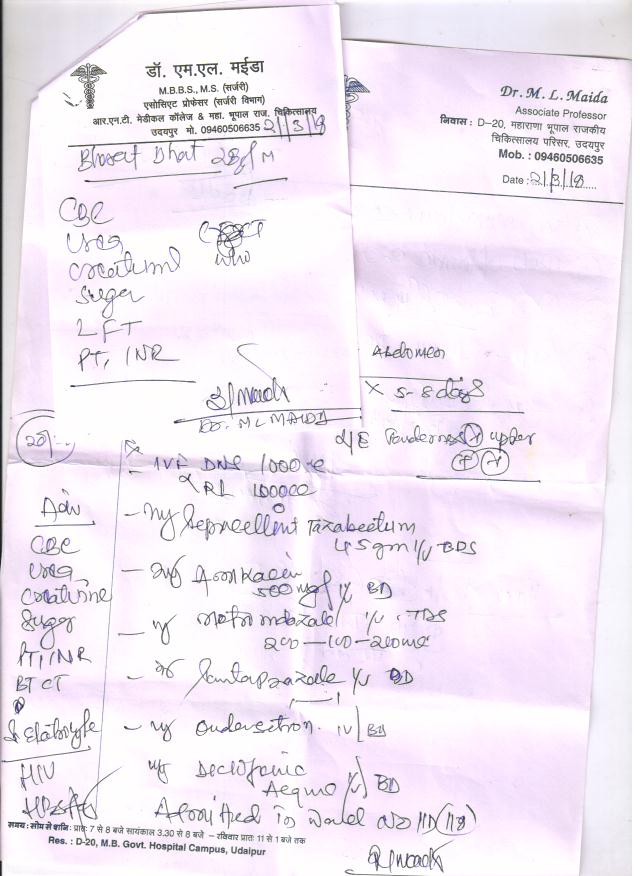 डॉ. एम.एल. मईडा
M.B.B.S., M.S. (सर्जरी)
एसोसिएट प्रोफेसर (सर्जरी विभाग)
आर.एन.टी. मेडीकल कॉलेज & महा. भूपाल राज. चिकित्सालय
उदयपुर मो. 09460506635 21/3/18
Bharat Bhat 28y/M
CBC
urea
creatinine
Suger
LFT
PT, INR
Dr. ML MAIDA
Dr. M. L. Maida
Associate Professor
निवास : D-20, महाराणा भूपाल राजकीय
चिकित्सालय परिसर, उदयपुर
Mob. : 09460506635
Date : 21/3/18
Abdomen
x 5-8 days
Tenderness + upper
Adv
CBC
urea
Creatinine
Suger
PT, INR
BT CT
S. Eletrolyte
HIV
HBsAg
- IVF DNS 1000cc
RL 1000cc
4.5gm IV BDS
500mg IV BD
IV TDS
200-100-200ml
- Inj Pantaprazole IV BD
- Inj Ondensetron IV BD
Inj Dicl​ofenic
Aequa IV BD
Admitted in Ward No
समय : सोम से शनि : प्रातः 7 से 8 बजे सायंकाल 3.30 से 8 बजे – रविवार प्रातः 11 से 1 बजे तक
Res. : D-20, M.B. Govt. Hospital Campus, Udaipur